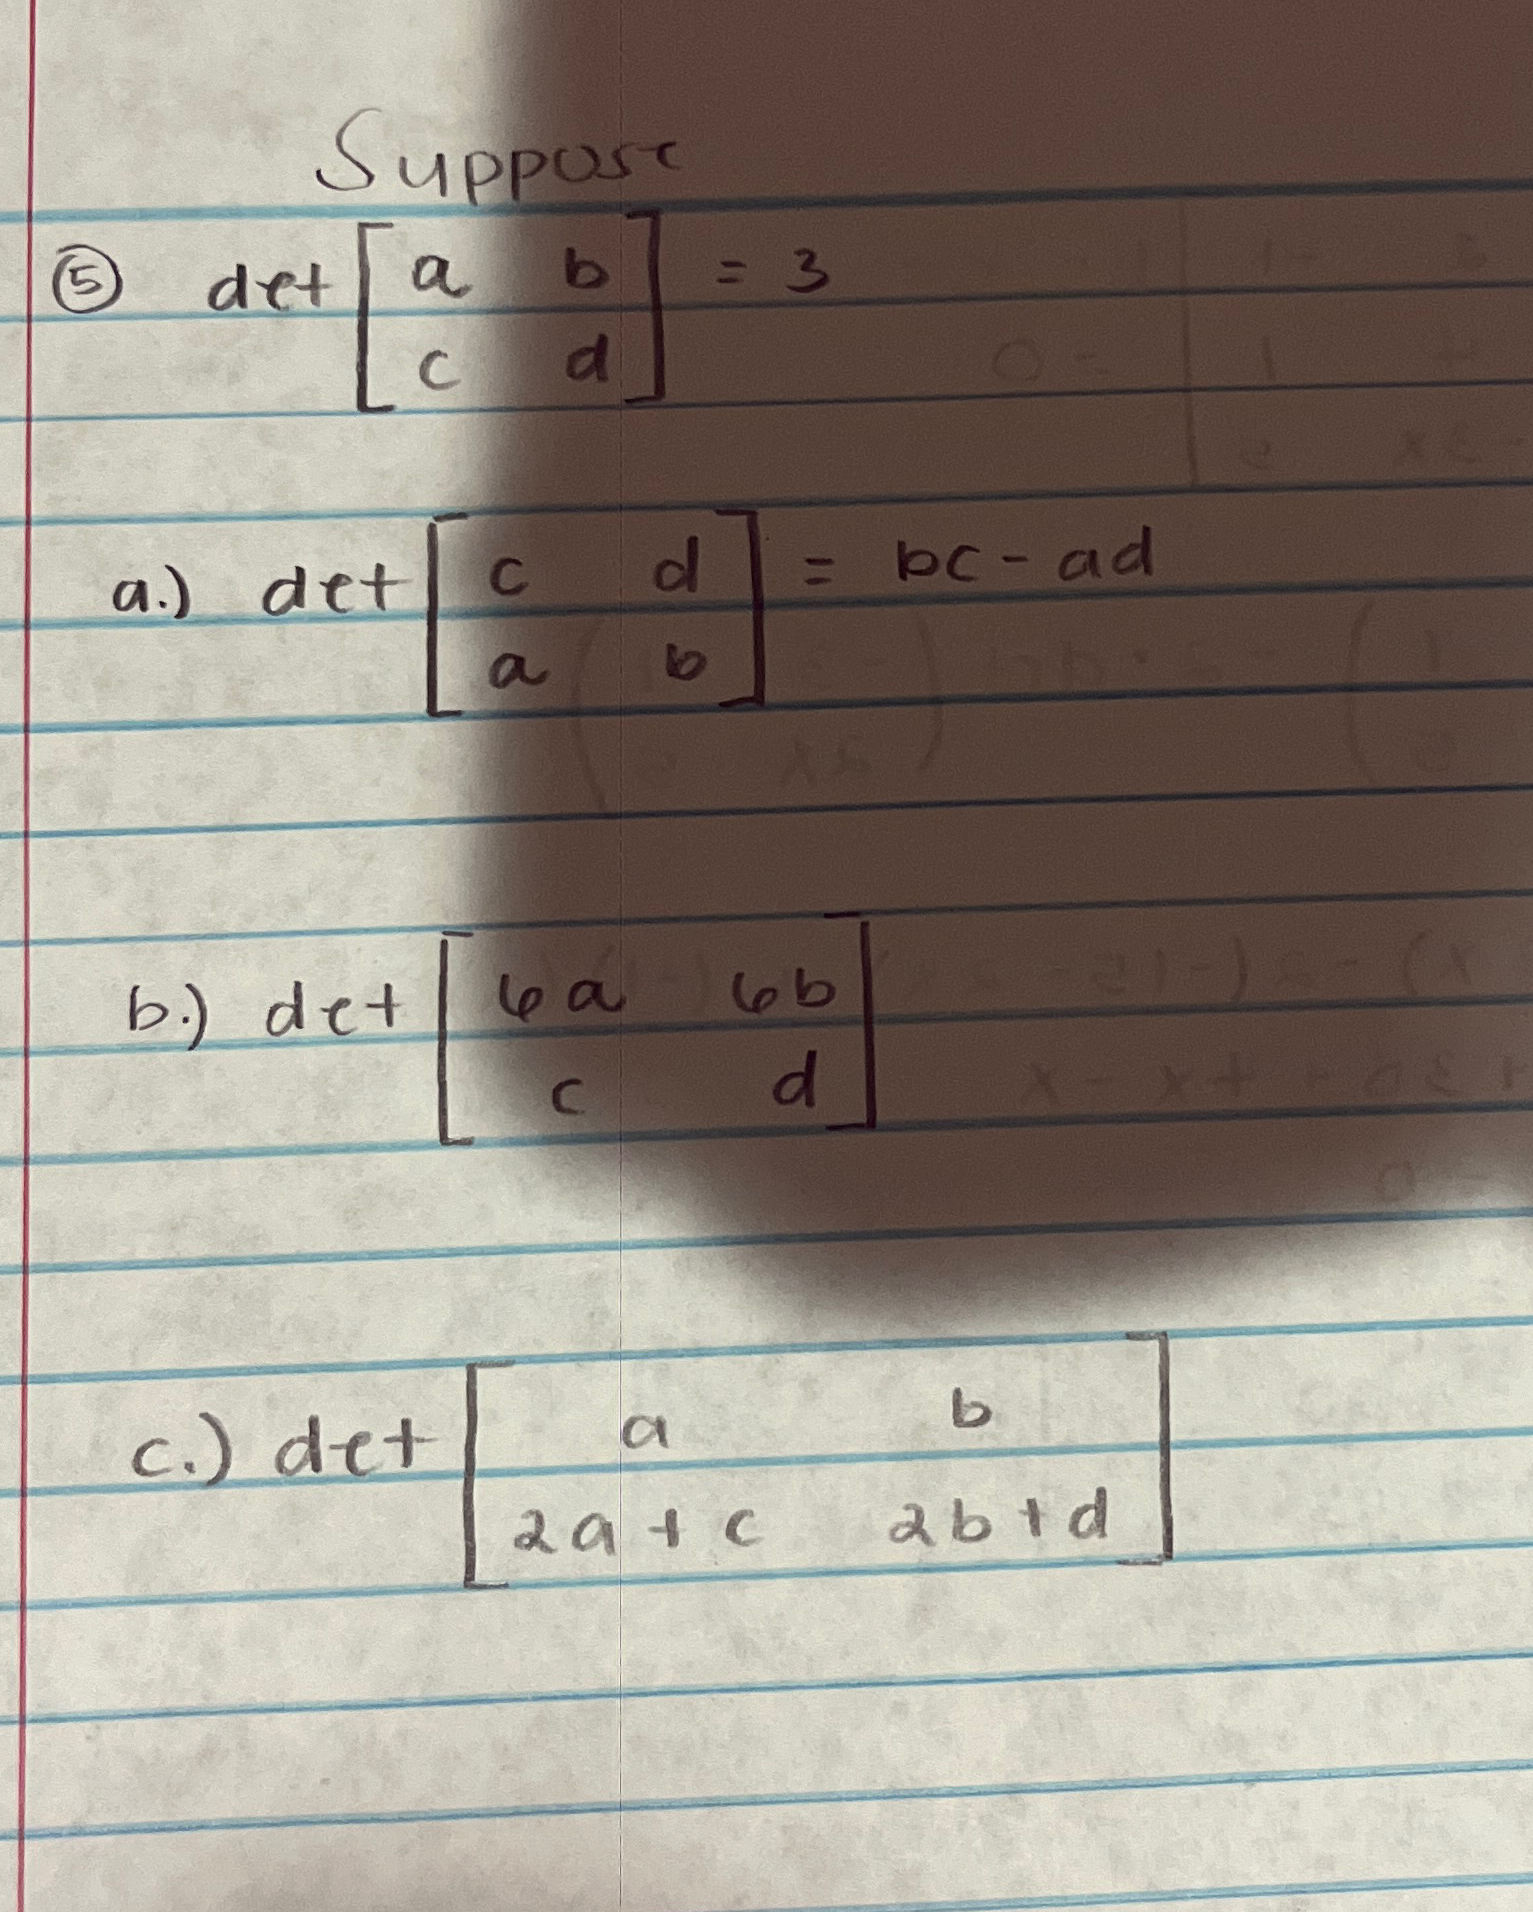 Suppose
⑤ det [ a b ] = 3
c d
a.) det [ c d ] = bc - ad
a b
b.) det [ 6a 6b ]
c d
c.) det [ a b ]
2a + c 2b + d